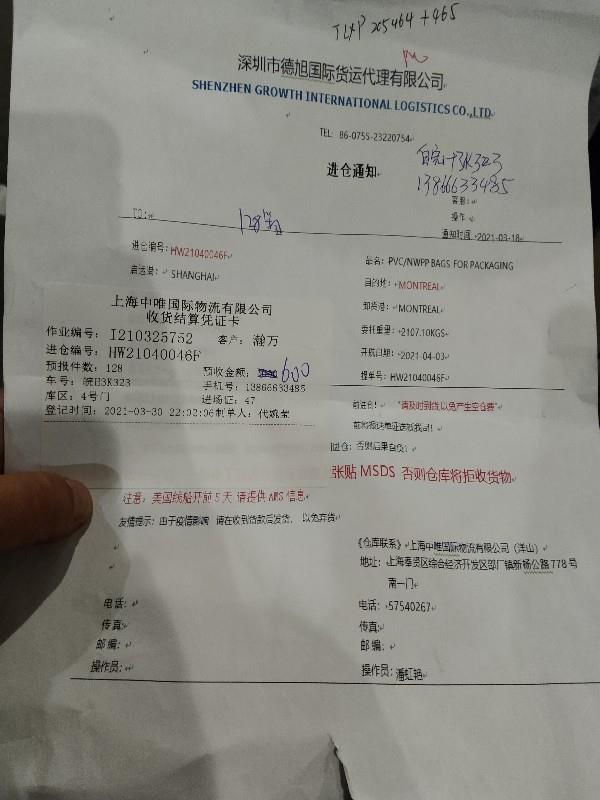 TLXP 205464+465
深圳市德旭国际货运代理有限公司
SHENZHEN GROWTH INTERNATIONAL LOGISTICS CO.,LTD
TEL: 86-0755-23220754
进仓通知
皖H3K323
13866633485
客服:
操作
TO:
128
通知时间:2021-03-18
进仓编号:HW21040046F
启运港: SHANGHAI
品名: PVC/NWPP BAGS FOR PACKAGING
目的地: MONTREAL
卸货港: MONTREAL
委托重里: 2107.10KGS
开航日期: 2021-04-03
提单号: HW21040046F
上海中唯国际物流有限公司
收货结算凭证卡
作业编号: I210325752 客户: 瀚万
进仓编号: HW21040046F
预报件数: 128 预收金额: 600
车号: 皖H3K323 手机号: 13866633485
库区: 4号门 进场证: 47
登记时间: 2021-03-30 22:02:06制单人: 代婉莹
前进仓! "请及时到货,以免产生空仓费"
前将报关单证送找我司!
进仓: 否则后果自负!
张贴 MSDS 否则仓库将拒收货物
注意: 美国线船开前5天 请提供 AMS 信息
友情提示: 由于疫情影响 请在收到货款后发货, 以免弃货
《仓库联系》上海中唯国际物流有限公司(洋山)
地址: 上海奉贤区综合经济开发区邵厂镇新杨公路778号
南一门
电话: 电话: 57540267
传真: 传真:
邮编: 邮编:
操作员: 操作员: 潘虹艳